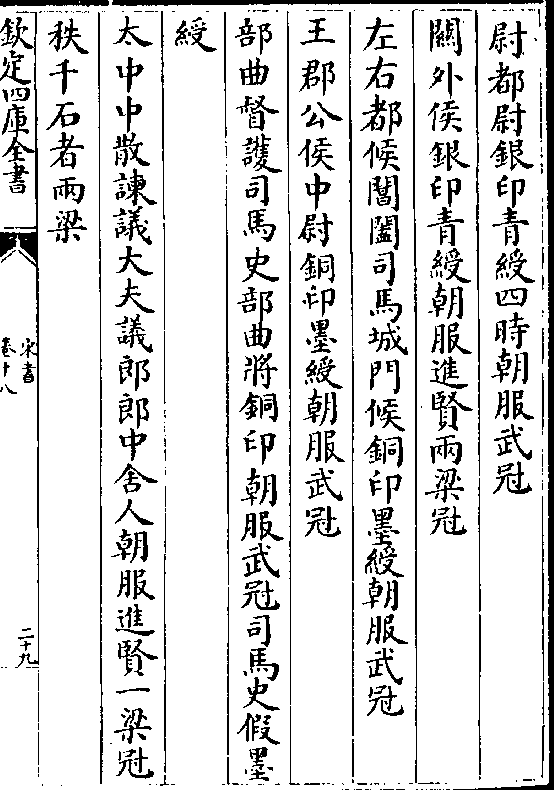 尉都尉銀印青綬四時朝服武冠
關外侯銀印青綬朝服進賢兩梁冠
左右都候閶闔司馬城門候銅印墨綬朝服武冠
王郡公侯中尉銅印墨綬朝服武冠
部曲督護司馬史部曲將銅印朝服武冠司馬史假墨
綬
太中中散諫議大夫議郎郎中舍人朝服進賢一梁冠
秩千石者兩梁
欽定四庫全書
宋書
卷十八
二十九